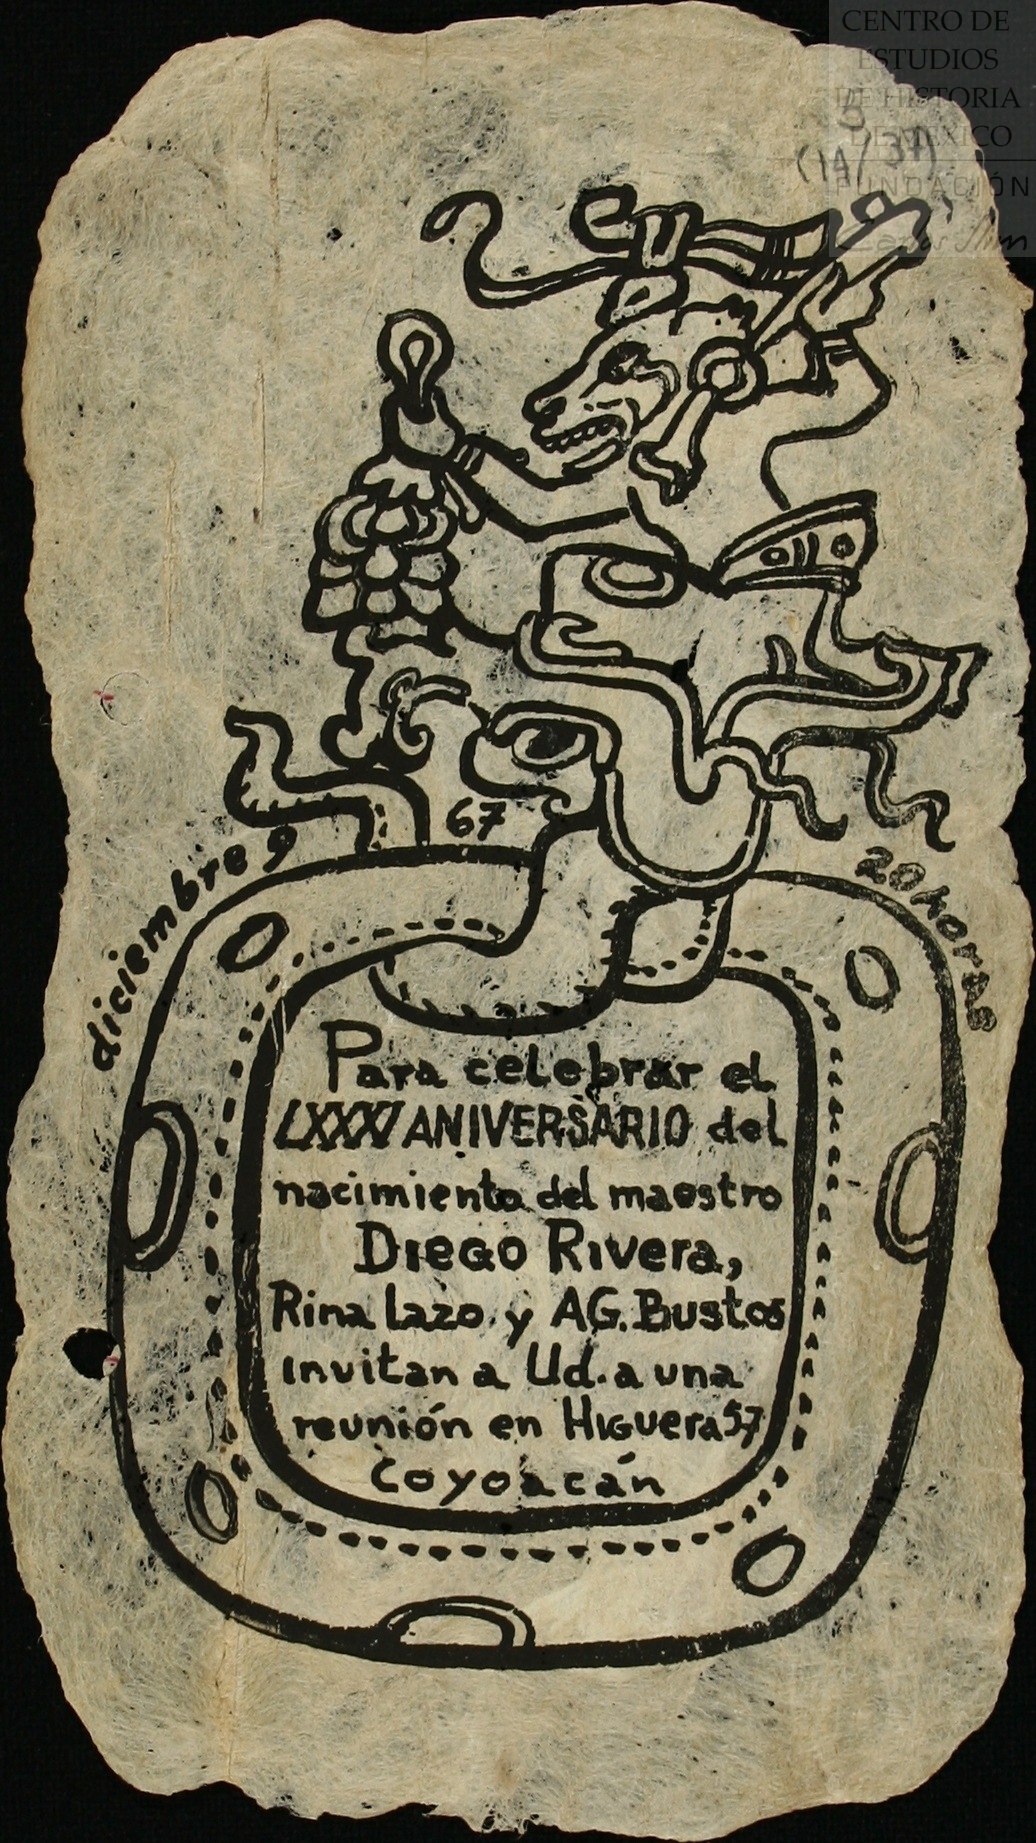 CENTRO DE
ESTUDIOS
DE HISTORIA
DE MÉXICO
FUNDACIÓN
(14/37)
67
diciembre 9
20 horas
Para celebrar el
LXXXI ANIVERSARIO del
nacimiento del maestro
DIEGO RIVERA,
Rina Lazo y AG. Bustos
invitan a Ud. a una
reunión en HIGUERA 57
Coyoacán